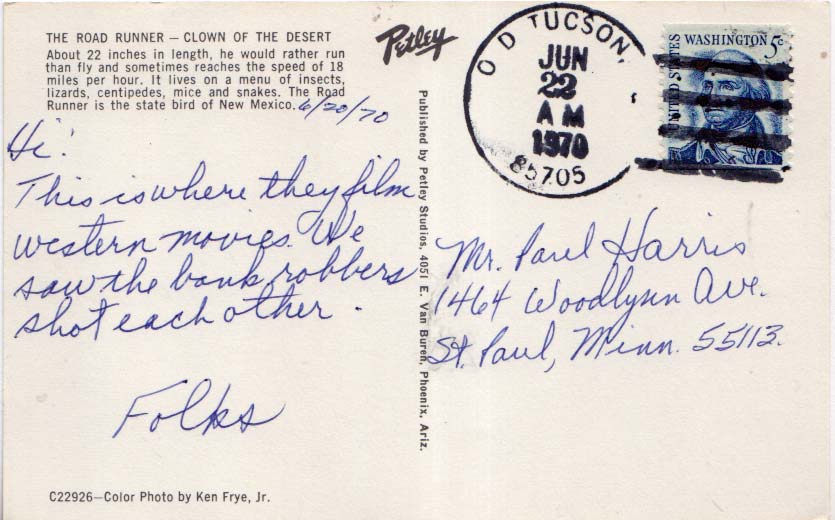 THE ROAD RUNNER – CLOWN OF THE DESERT
About 22 inches in length, he would rather run
than fly and sometimes reaches the speed of 18
miles per hour. It lives on a menu of insects,
lizards, centipedes, mice and snakes. The Road
Runner is the state bird of New Mexico.
6/20/70
Hi!
This is where they film
western movies. We
saw the bank robbers
shot each other.
Folks
C22926—Color Photo by Ken Frye, Jr.
Petley
Published by Petley Studios, 4051 E. Van Buren, Phoenix, Ariz.
OD TUCSON,
JUN
22
AM
1970
85705
UNITED STATES
WASHINGTON 5c
Mr. Paul Harris
1464 Woodlynn Ave.
St. Paul, Minn. 55113.